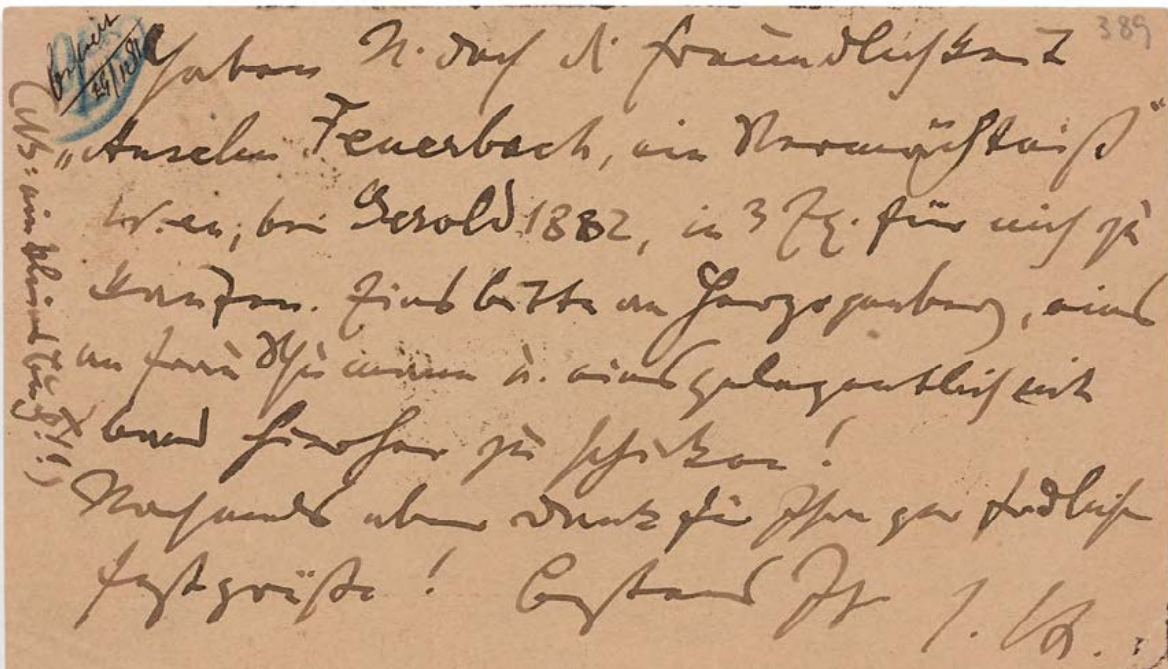 389
Haben S. doch die Freundlichkeit
„Anselm Feuerbach, ein Vermächtniß“
Wien, bei Gerold 1882, in 3 Ex. für mich zu
kaufen. Eins bitte an Herzogenberg, eins
an Frau Schumann u. eins gelegentlich mit
hierher zu schicken!
Nochmals aber Dank für Ihre gar freundlichen
Festgrüße! Bestens Ihr J. Br.
(NB: ein kleines Buch!!)